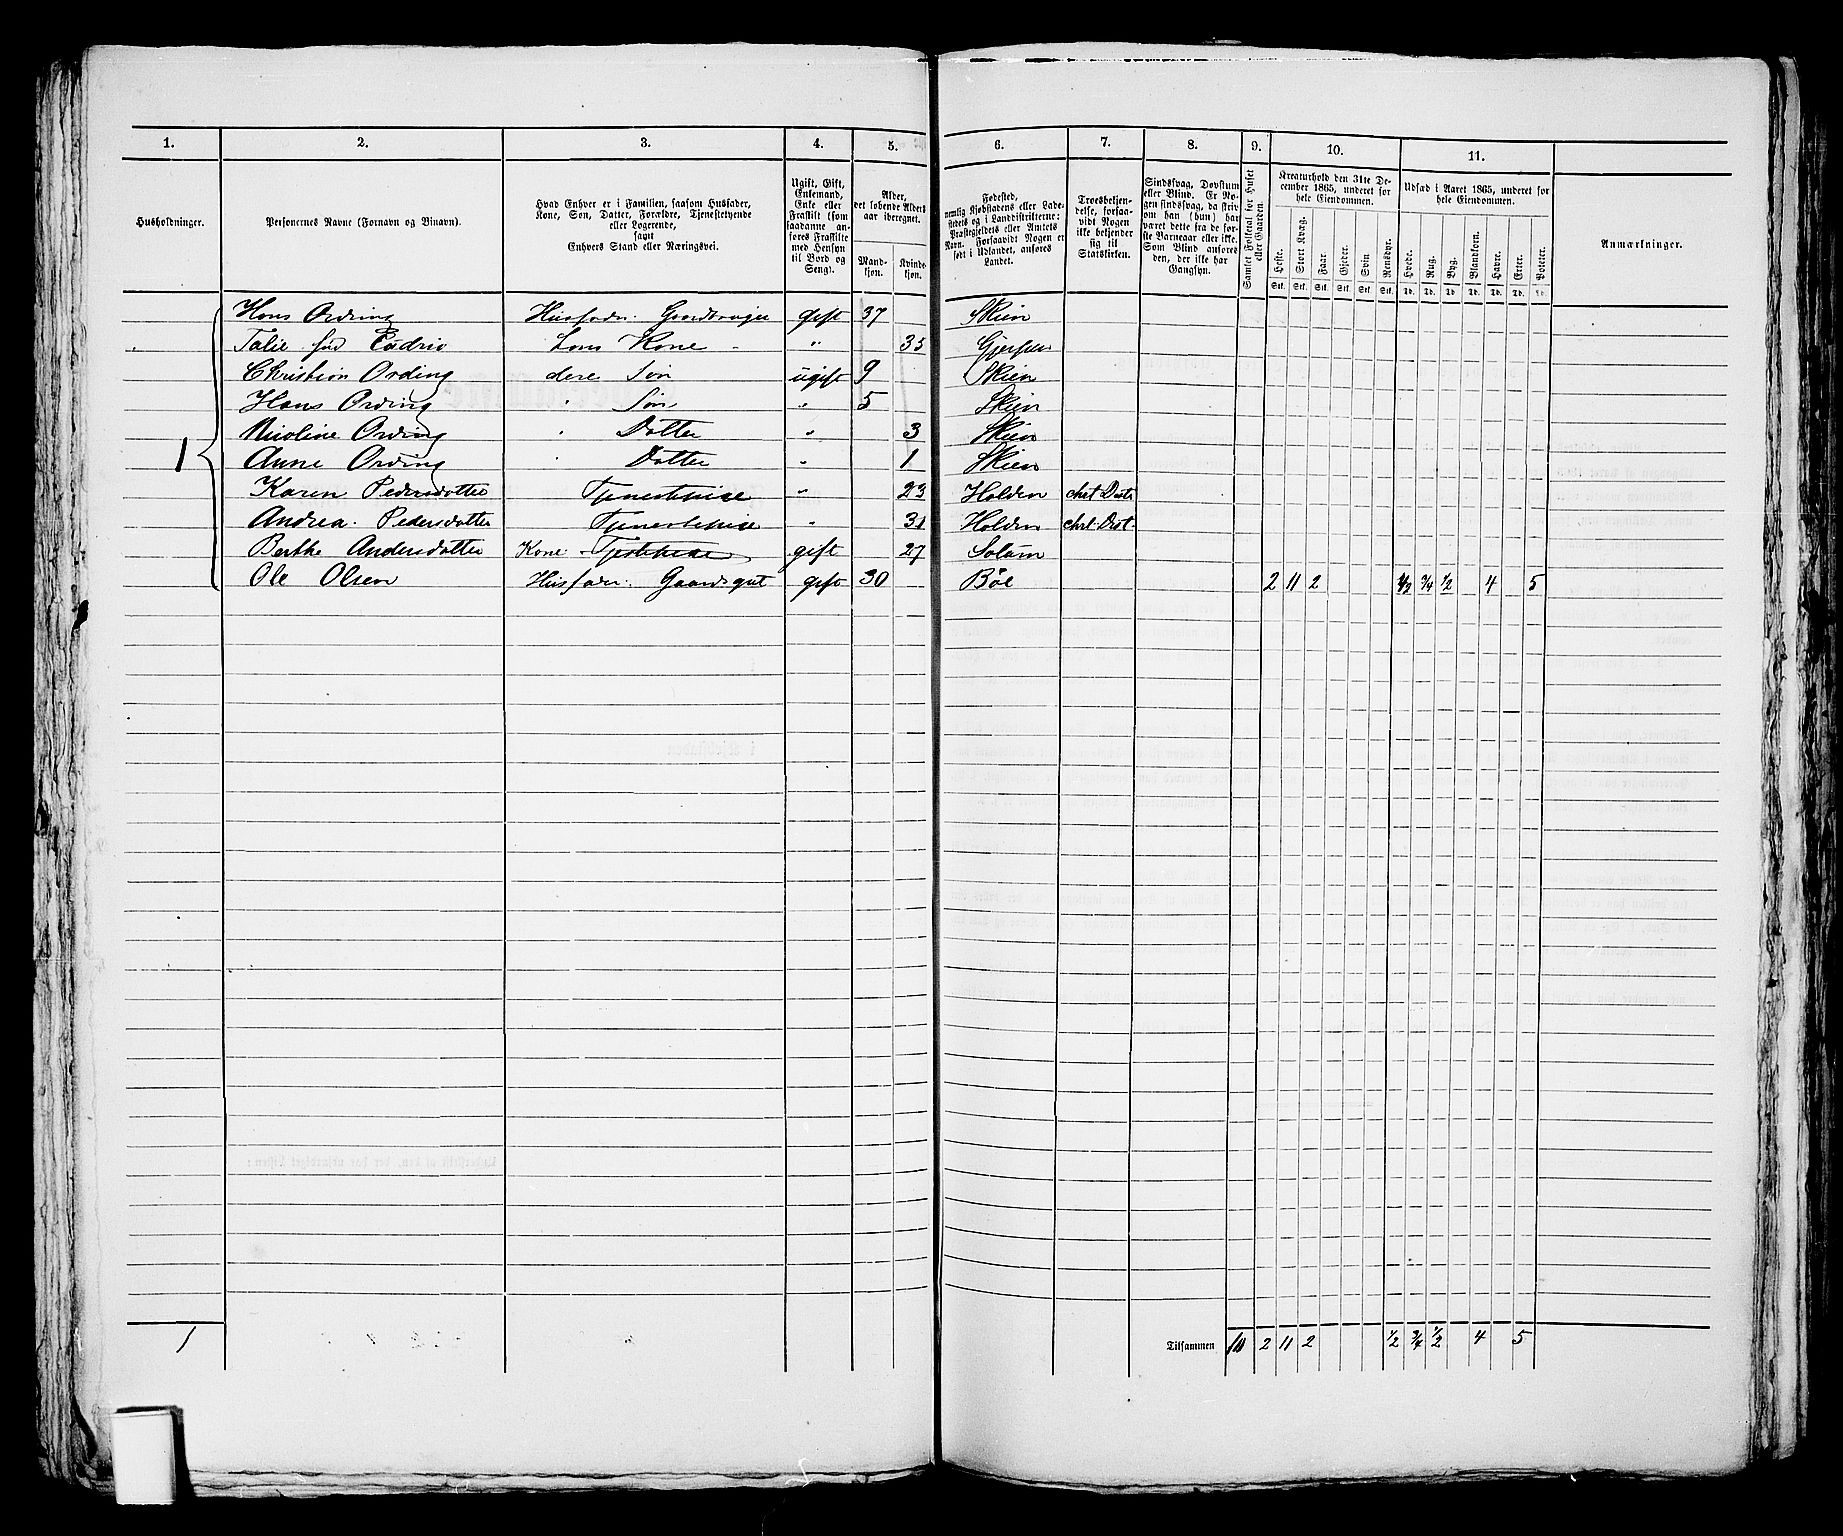 1. 2. 3. 4. 5. 6. 7. 8. 9. 10. 11.
Husholdninger.
Personernes Navne (Fornavn og Binavn).
Hvad Enhver er i Familien, saasom Husfader, Kone, Søn, Datter, Forældre, Tjenestetyende eller Logerende, samt Enhvers Stand eller Næringsvei.
Ugift, Gift, Enkemand, Enke eller Fraskilt (som saadanne anføres Fraskilte med Hensyn til Bord og Seng).
Alder, det løbende Alders aar iberegnet.
Mandkjøn. Kvindekjøn.
Fødested, nemlig Kjøbstadens eller Ladestedets og i Landdistrikterne: Præstegjeldets eller Amtets Navn. Forsaavidt Nogen er født i Udlandet, anføres Landet.
Troesbekjendelse, forsaavidt Nogen ikke bekjender sig til Statskirken.
Sindssvag, Døvstum eller Blind. Er Nogen sindssvag, da skrives om han (hun) har været dette fra de første Barneaar eller ikke. Som Blind anføres den, der ikke har Gangsyn.
Samlet Folketal for Huset eller Gaarden.
Kreaturhold den 31te December 1865, underet for hele Eiendommen.
Heste. Stort Kvæg. Faar. Gjeder. Svin. Rensdyr.
Udsæd i Aaret 1865, underet for hele Eiendommen.
Hvede. Rug. Byg. Blandkorn. Havre. Erter. Poteter.
Anmærkninger.
Hans Ording Husfader. Gaardbruger gift 37 Skien
Talie hans Kone " 35 Gjerpen
Christian Ording deres Søn ugift 9 Skien
Hans Ording " Søn " 5 Skien
Nicoline Ording " Datter " 3 Skien
1 Anne Ording Datter " 1 Skien
Karen Pedersdatter Tjenestepige " 23 Holden
Andrea Pedersdatter Tjenestepige " 31 Holden
Berthe Andersdatter Kone gift 27 Solum
Ole Olsen Husfader. Gaardsgut gift 30 Bøe 2 11 2 1/2 3/4 1/2 4 5
1 Tilsammen 10 2 11 2 1/2 3/4 1/2 4 5